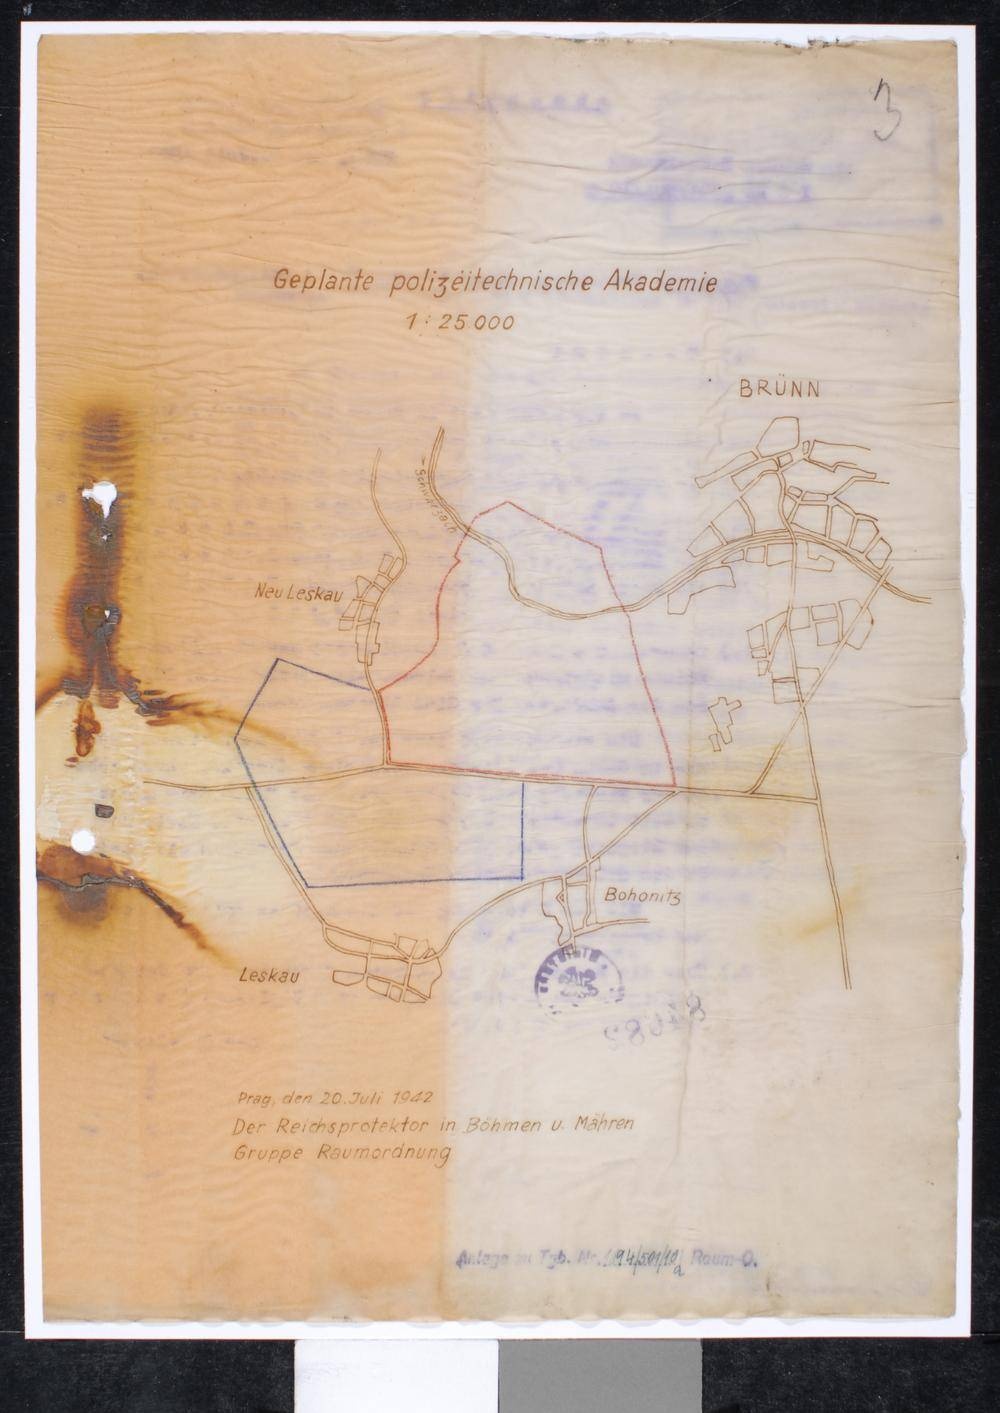 3
Geplante polizeitechnische Akademie
1 : 25 000
BRÜNN
Schwarzach
Neu Leskau
Bohonitz
Leskau
Prag, den 20. Juli 1942
Der Reichsprotektor in Böhmen u. Mähren
Gruppe Raumordnung
Anlage zu Tgb. Nr. Raum-O.